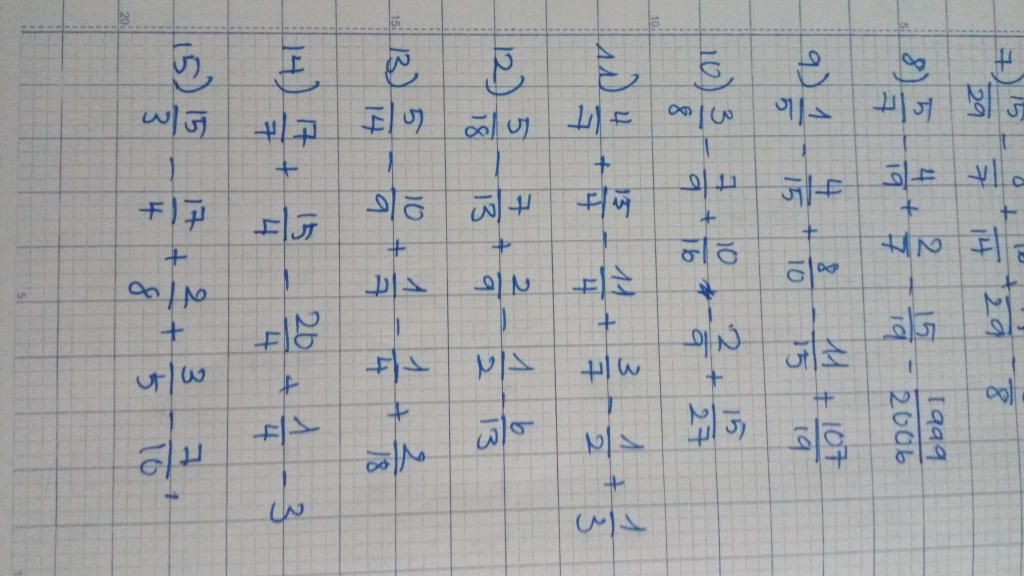 7) 15/29 - /7 + /14 + /29 - /8
8) 5/7 - 4/19 + 2/7 - 15/19 - 1999/2006
9) 1/5 - 4/15 + 8/10 - 11/15 + 107/19
10) 3/8 - 7/9 + 10/16 - 2/9 + 15/27
11) 4/7 + 15/4 - 11/4 + 3/7 - 1/2 + 1/3
12) 5/18 - 7/13 + 2/9 - 1/2 - 6/13
13) 5/14 - 10/9 + 1/7 - 1/4 + 2/18
14) 17/7 + 15/4 - 26/4 + 1/4 - 3
15) 15/3 - 17/4 + 2/8 + 3/5 - 7/16
5
10
15
20
5